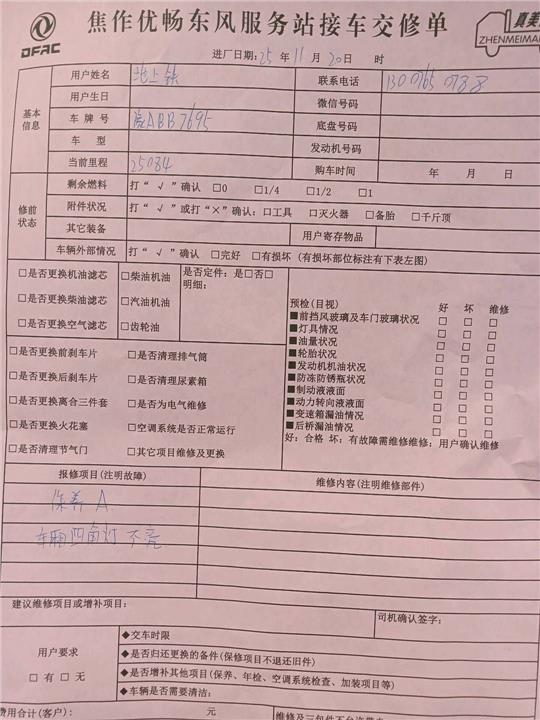 DFAC
焦作优畅东风服务站接车交修单
真美
ZHENMEIMA
进厂日期:25年11月20日 时
基本信息
用户姓名 地上铁 联系电话
用户生日 微信号码
车牌号 ABB7695 底盘号码
车型 发动机号码
当前里程 25084 购车时间 年 月 日
修前状态
剩余燃料 打“√”确认 □0 □1/4 □1/2 □1
附件状况 打“√”或打“×”确认:□工具 □灭火器 □备胎 □千斤顶
其它装备 用户寄存物品
车辆外部情况 打“√”确认 □完好 □有损坏(有损坏部位标注有下表左图)
□是否更换机油滤芯 □柴油机油 是否定件:是□否□
明细:
□是否更换柴油滤芯 □汽油机油
□是否更换空气滤芯 □齿轮油
预检(目视) 好 坏 维修
■前挡风玻璃及车门玻璃状况 □ □ □
■灯具情况 □ □ □
■油量状况 □ □ □
■轮胎状况 □ □ □
■发动机机油状况 □ □ □
■防冻防锈瓶状况 □ □ □
■制动液液面 □ □ □
■动力转向液液面 □ □ □
■变速箱漏油情况 □ □ □
■后桥漏油情况 □ □ □
好:合格 坏:有故障需维修维修:用户确认维修
□是否更换前刹车片 □是否清理排气筒
□是否更换后刹车片 □是否清理尿素箱
□是否更换离合三件套 □是否为电气维修
□是否更换火花塞 □空调系统是否正常运行
□是否清理节气门 □其它项目维修及更换
报修项目(注明故障) 维修内容(注明维修部件)
保养 A
车厢四角灯 不亮
建议维修项目或增补项目:
司机确认签字:
用户要求
□有 □无
◆交车时限
◆是否归还更换的备件(保修项目不退还旧件)
◆是否增补其他项目(保养、年检、空调系统检查、加装项目等)
◆车辆是否需要清洁:
费用合计(客户): 元
维修及三包件不允许带走